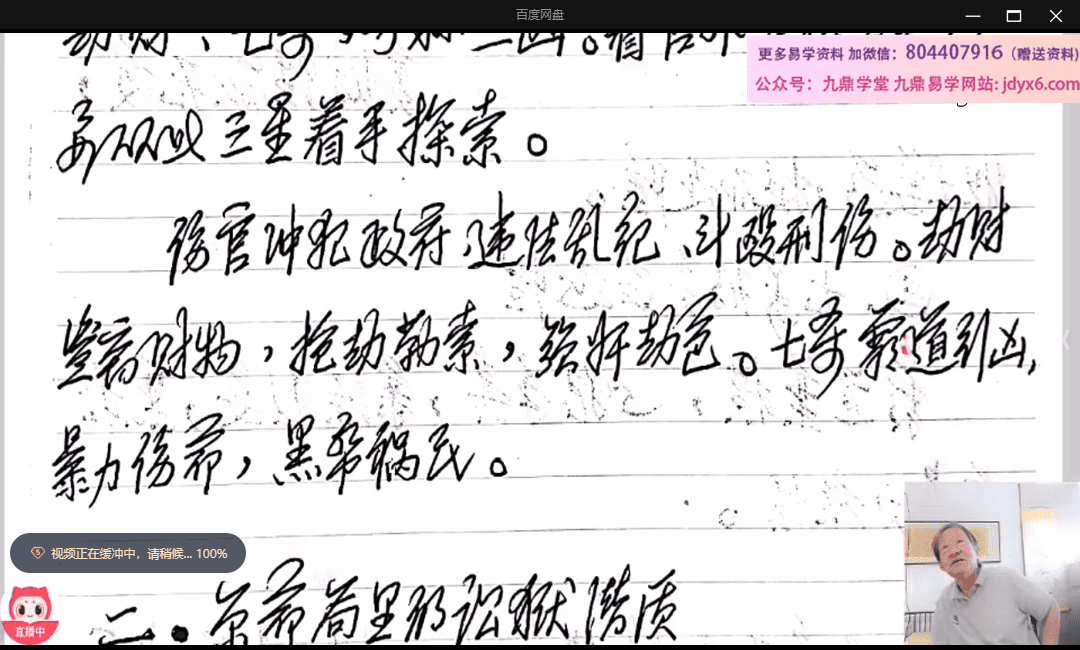 百度网盘
劫财、七杀
更多易学资料 加微信：804407916（赠送资料）
公众号：九鼎学堂 九鼎易学网站: jdyx6.com
要从此三星着手探索。
伤官冲犯政府，违法乱纪、斗殴刑伤。劫财
财物，抢劫勒索，强奸劫色。七杀霸道引凶，
暴力伤命，黑帮祸民。
视频正在缓冲中，请稍候... 100%
直播中
二．原命局里的讼狱潜质